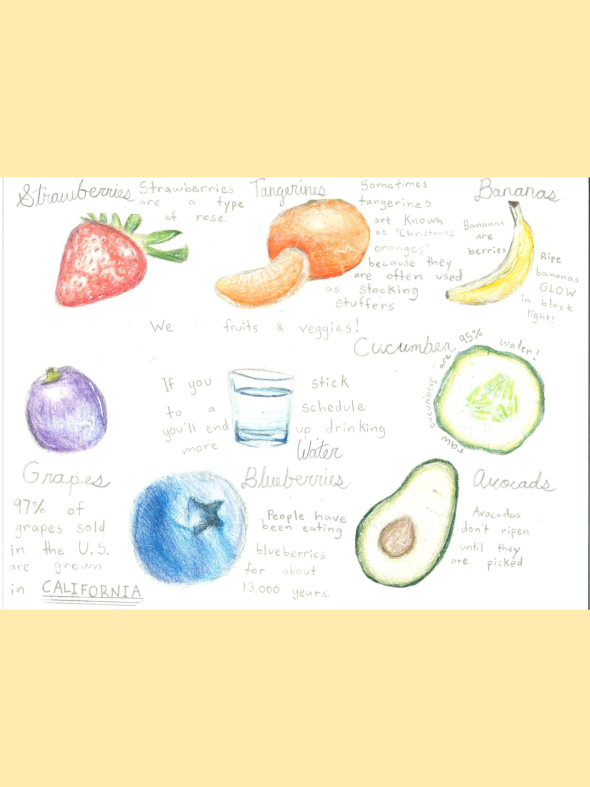 Strawberries
Strawberries
are a type
of rose!
Tangerines
Sometimes
tangerines
are known
as "Christmas
oranges"
because they
are often used
as stocking
stuffers
Bananas
Bananas
are
berries
Ripe
bananas
GLOW
in black
light!
We fruits & veggies!
Cucumber
raw cucumbers are 95% water!
If you stick
to a schedule
you'll end up drinking
more Water
Grapes
97% of
grapes sold
in the U.S.
are grown
in CALIFORNIA
Blueberries
People have
been eating
blueberries
for about
13,000 years.
Avocads
Avocados
don't ripen
until they
are picked